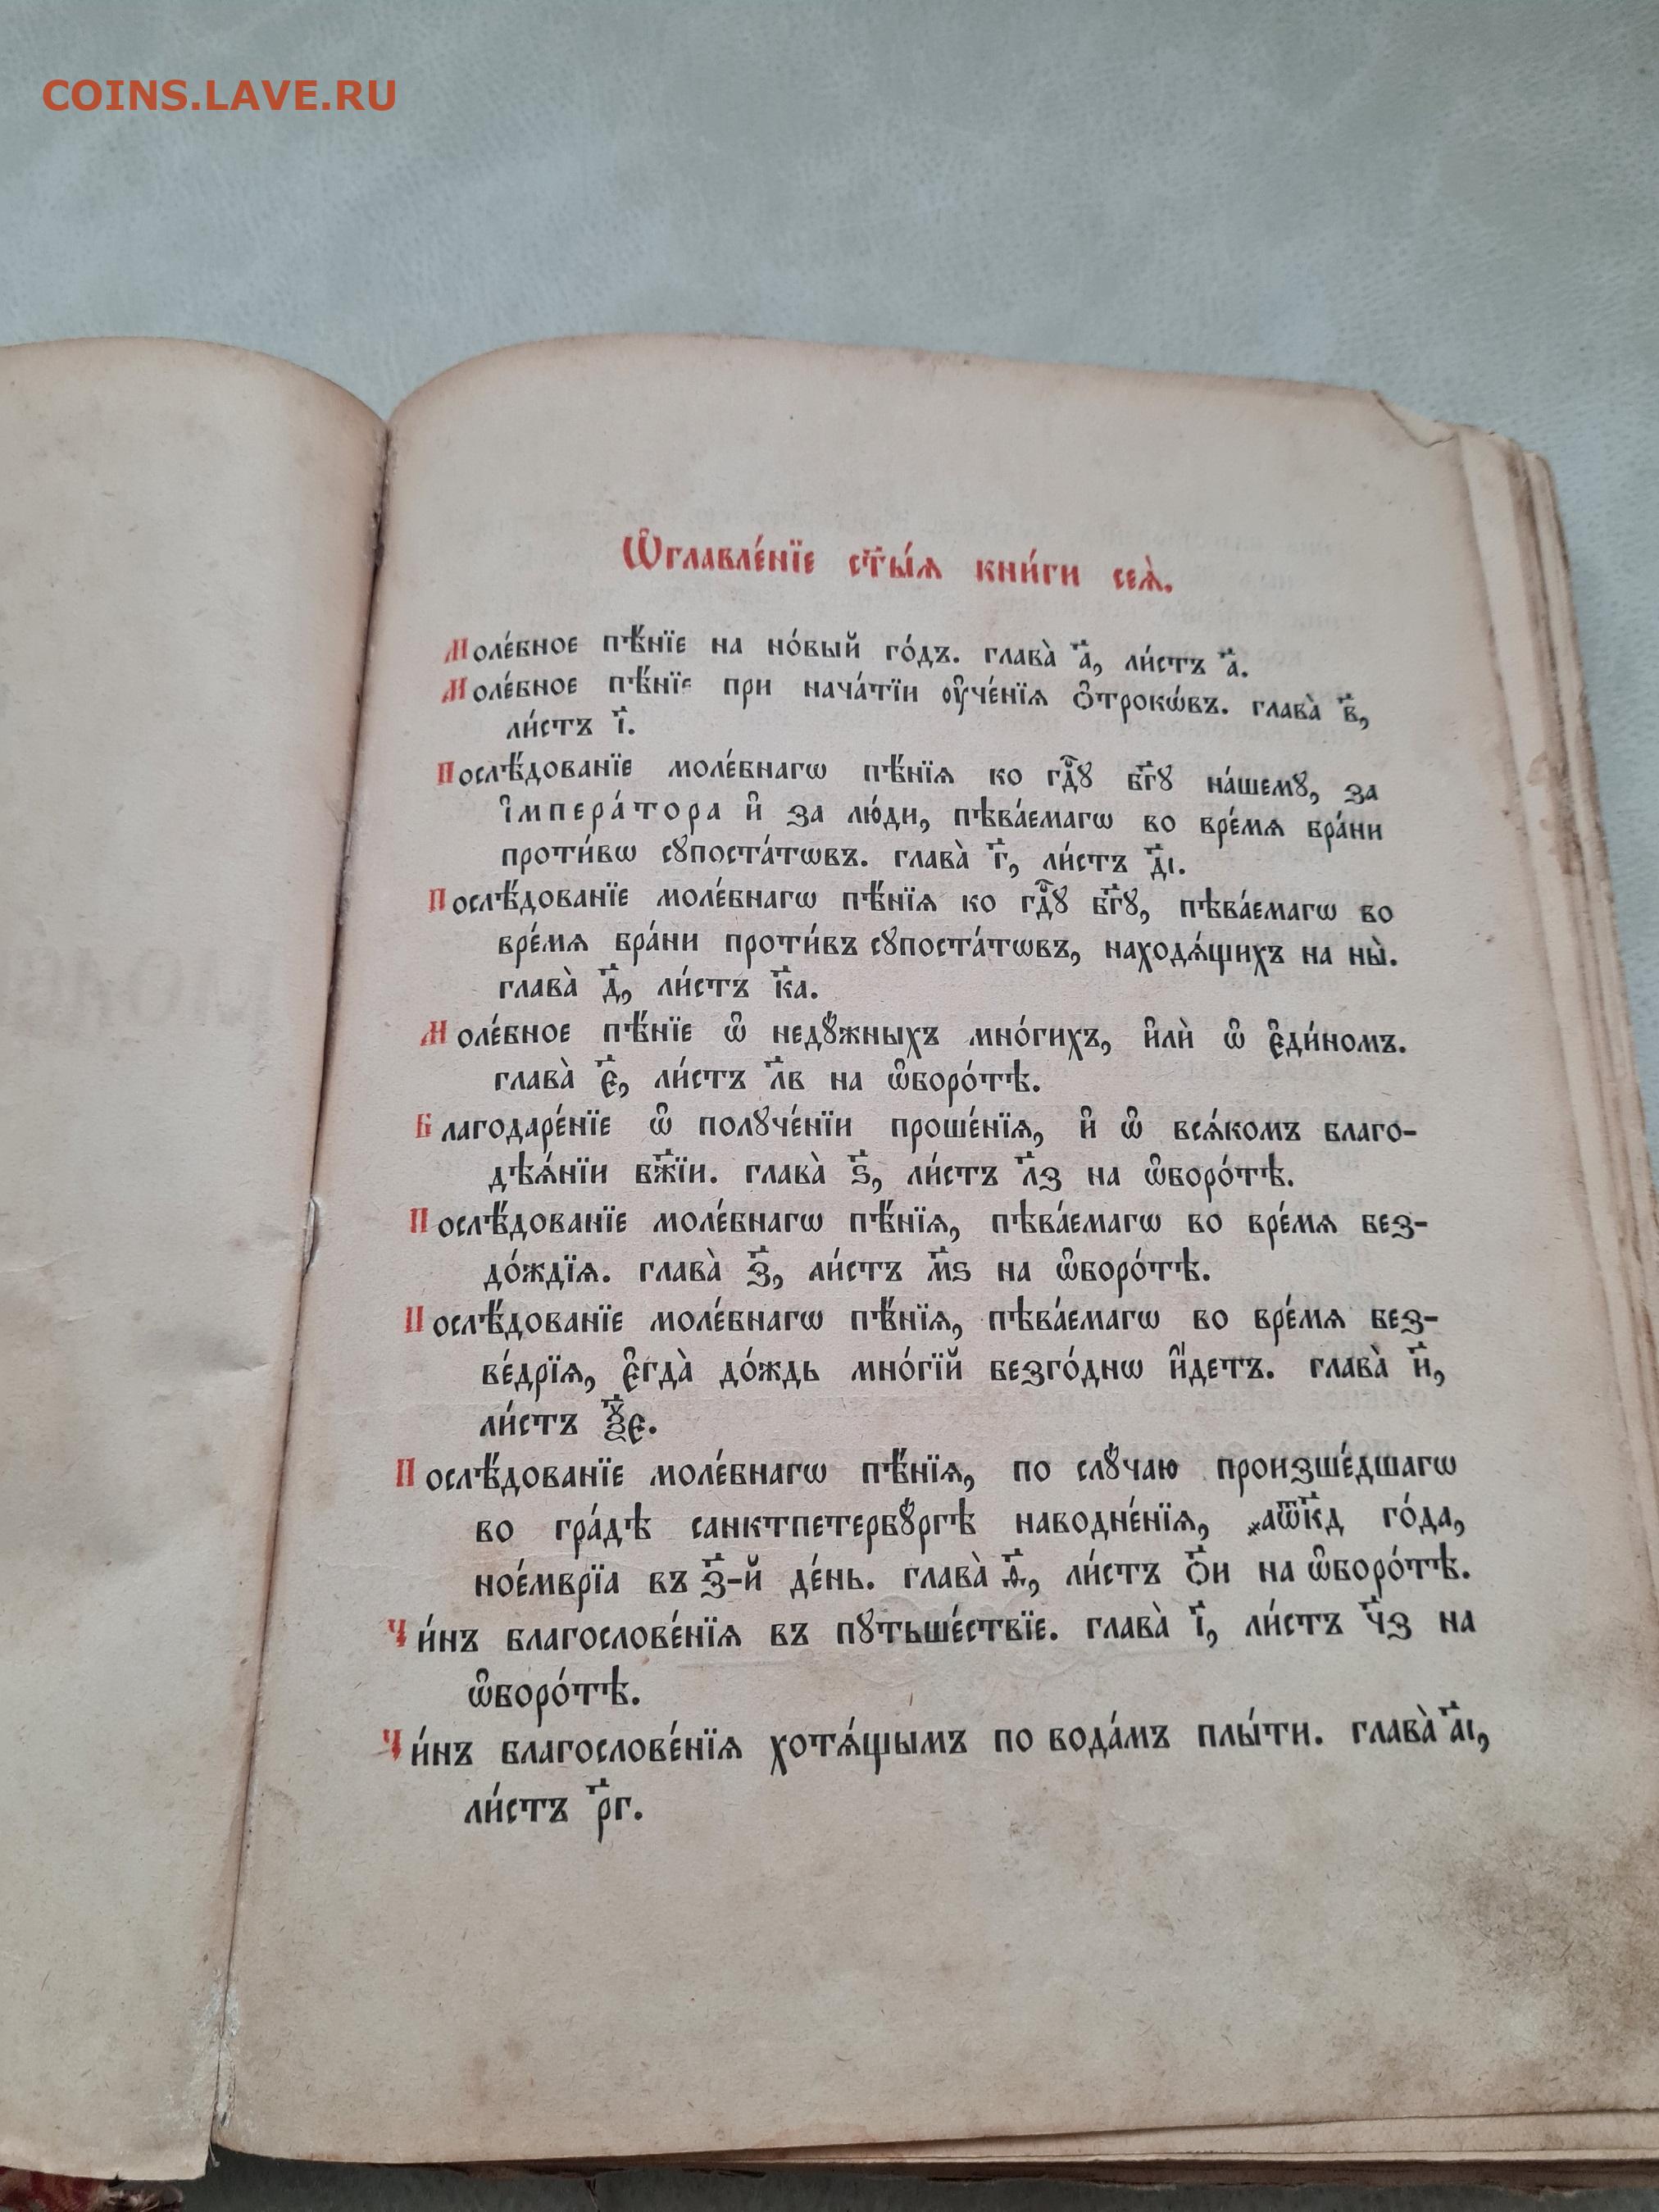 COINS.LAVE.RU
Ѡ҆главле́нїе ст҃ы́ѧ кни́ги сеѧ̀.
Моле́бное пѣ́нїе на но́вый го́дъ. глава̀ а҃, ли́стъ а҃.
Моле́бное пѣ́нїе при нача́тїи ᲂу҆че́нїѧ ѻ҆трокѡ́въ. глава̀ в҃,
ли́стъ і҃.
Послѣ́дованїе моле́бнагѡ пѣ́нїѧ ко гдⷭ҇ꙋ бг҃ꙋ на́шемꙋ, за
І҆мпера́тора и҆ за лю́ди, пѣва́емагѡ во вре́мѧ бра́ни
проти́вѡ сꙋпоста́тѡвъ. глава̀ г҃, ли́стъ д҃і.
Послѣ́дованїе моле́бнагѡ пѣ́нїѧ ко гдⷭ҇ꙋ бг҃ꙋ, пѣва́емагѡ во
вре́мѧ бра́ни проти́въ сꙋпоста́тѡвъ, находѧ́щихъ на ны̀.
глава̀ д҃, ли́стъ к҃а.
Моле́бное пѣ́нїе ѡ҆ недꙋ́жныхъ мно́гихъ, и҆лѝ ѡ҆ є҆ди́номъ.
глава̀ є҃, ли́стъ л҃в на ѡ҆боро́тѣ.
Благодаре́нїе ѡ҆ полꙋче́нїи проше́нїѧ, и҆ ѡ҆ всѧ́комъ благо-
дѣѧ́нїи бж҃їи. глава̀ ѕ҃, ли́стъ л҃з на ѡ҆боро́тѣ.
Послѣ́дованїе моле́бнагѡ пѣ́нїѧ, пѣва́емагѡ во вре́мѧ без-
до́ждїѧ. глава̀ з҃, ли́стъ м҃ѕ на ѡ҆боро́тѣ.
Послѣ́дованїе моле́бнагѡ пѣ́нїѧ, пѣва́емагѡ во вре́мѧ без-
ве́дрїѧ, є҆гда̀ до́ждь мно́гїй безго́днѡ и҆́детъ. глава̀ и҃,
ли́стъ ѯ҃є.
Послѣ́дованїе моле́бнагѡ пѣ́нїѧ, по слꙋ́чаю произше́дшагѡ
во гра́дѣ санктпетербꙋ́ргѣ наводне́нїѧ, ҂аѿк҃д го́да,
ное́мврїа въ з҃-й де́нь. глава̀ ѳ҃, ли́стъ ѻ҃и на ѡ҆боро́тѣ.
Чи́нъ благослове́нїѧ въ пꙋтьше́ствїе. глава̀ і҃, ли́стъ ч҃з на
ѡ҆боро́тѣ.
Чи́нъ благослове́нїѧ хотѧ́щымъ по вода́мъ плы́ти. глава̀ а҃і,
ли́стъ р҃г.